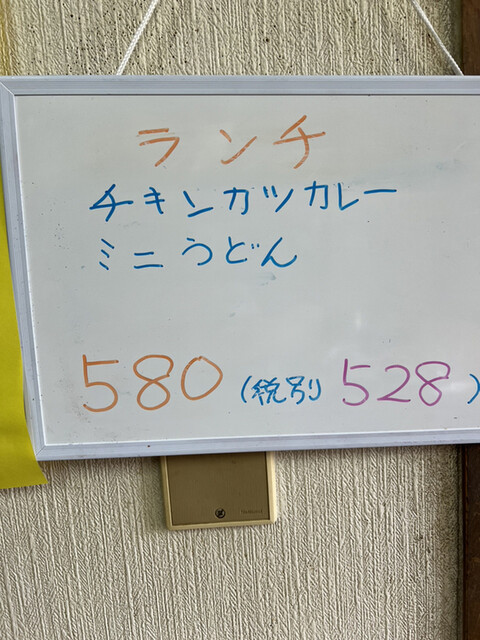 ランチ
チキンカツカレー
ミニうどん
580(税別528)